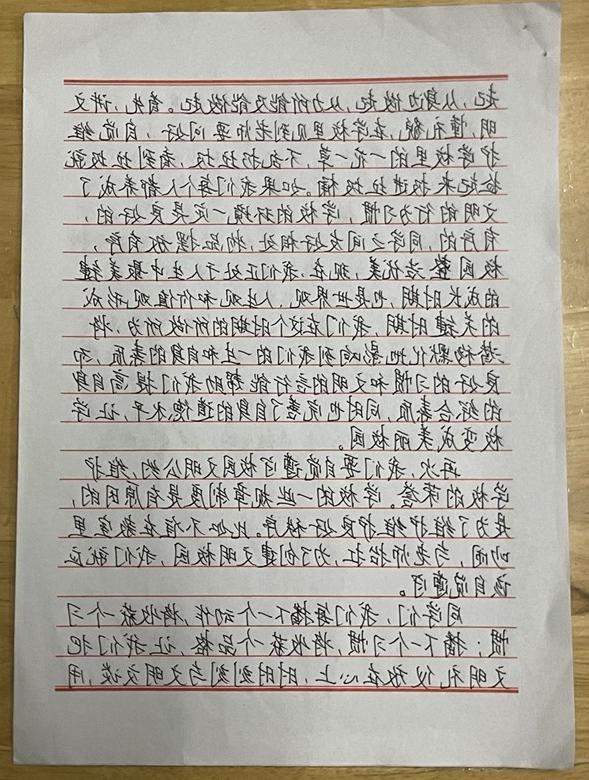 起,从身边做起,从力所能及能做起。首先,讲文
明,懂礼貌,在学校里见到老师要问好,自觉维
护学校里的一花一草,不乱扔垃圾,看到垃圾就
捡起来扔进垃圾桶。如果我们每个人都养成了
文明的行为习惯,学校的环境一定是良好的,
有序的,同学之间友好相处,物品摆放有序,
校园整洁优美,现在,我们正处于人生中最美键
的成长时期,也是世界观、人生观和价值观形成
的关键时期,我们在这个时期的所做所为,将
潜移默化地影响到我们的一生和自身的素质,而
良好的习惯和文明的言行能帮助我们提高自身
的综合素质,同时也完善了自身的道德水平,让学
校变成美丽校园。
再次,我们要自觉遵守校园文明公约,维护
学校的荣誉。学校的一些规章制度是有原因的,
是为了维护维护良好秩序。比如不准在教室里
吵闹,与老师抬杠,为了创建文明校园,我们就应
该自觉遵守。
同学们,我们每播下一个动作,将收获一个习
惯;播下一个习惯,将收获一个品格,让我们把
文明礼仪放在心上,时时刻刻与文明交谈,用